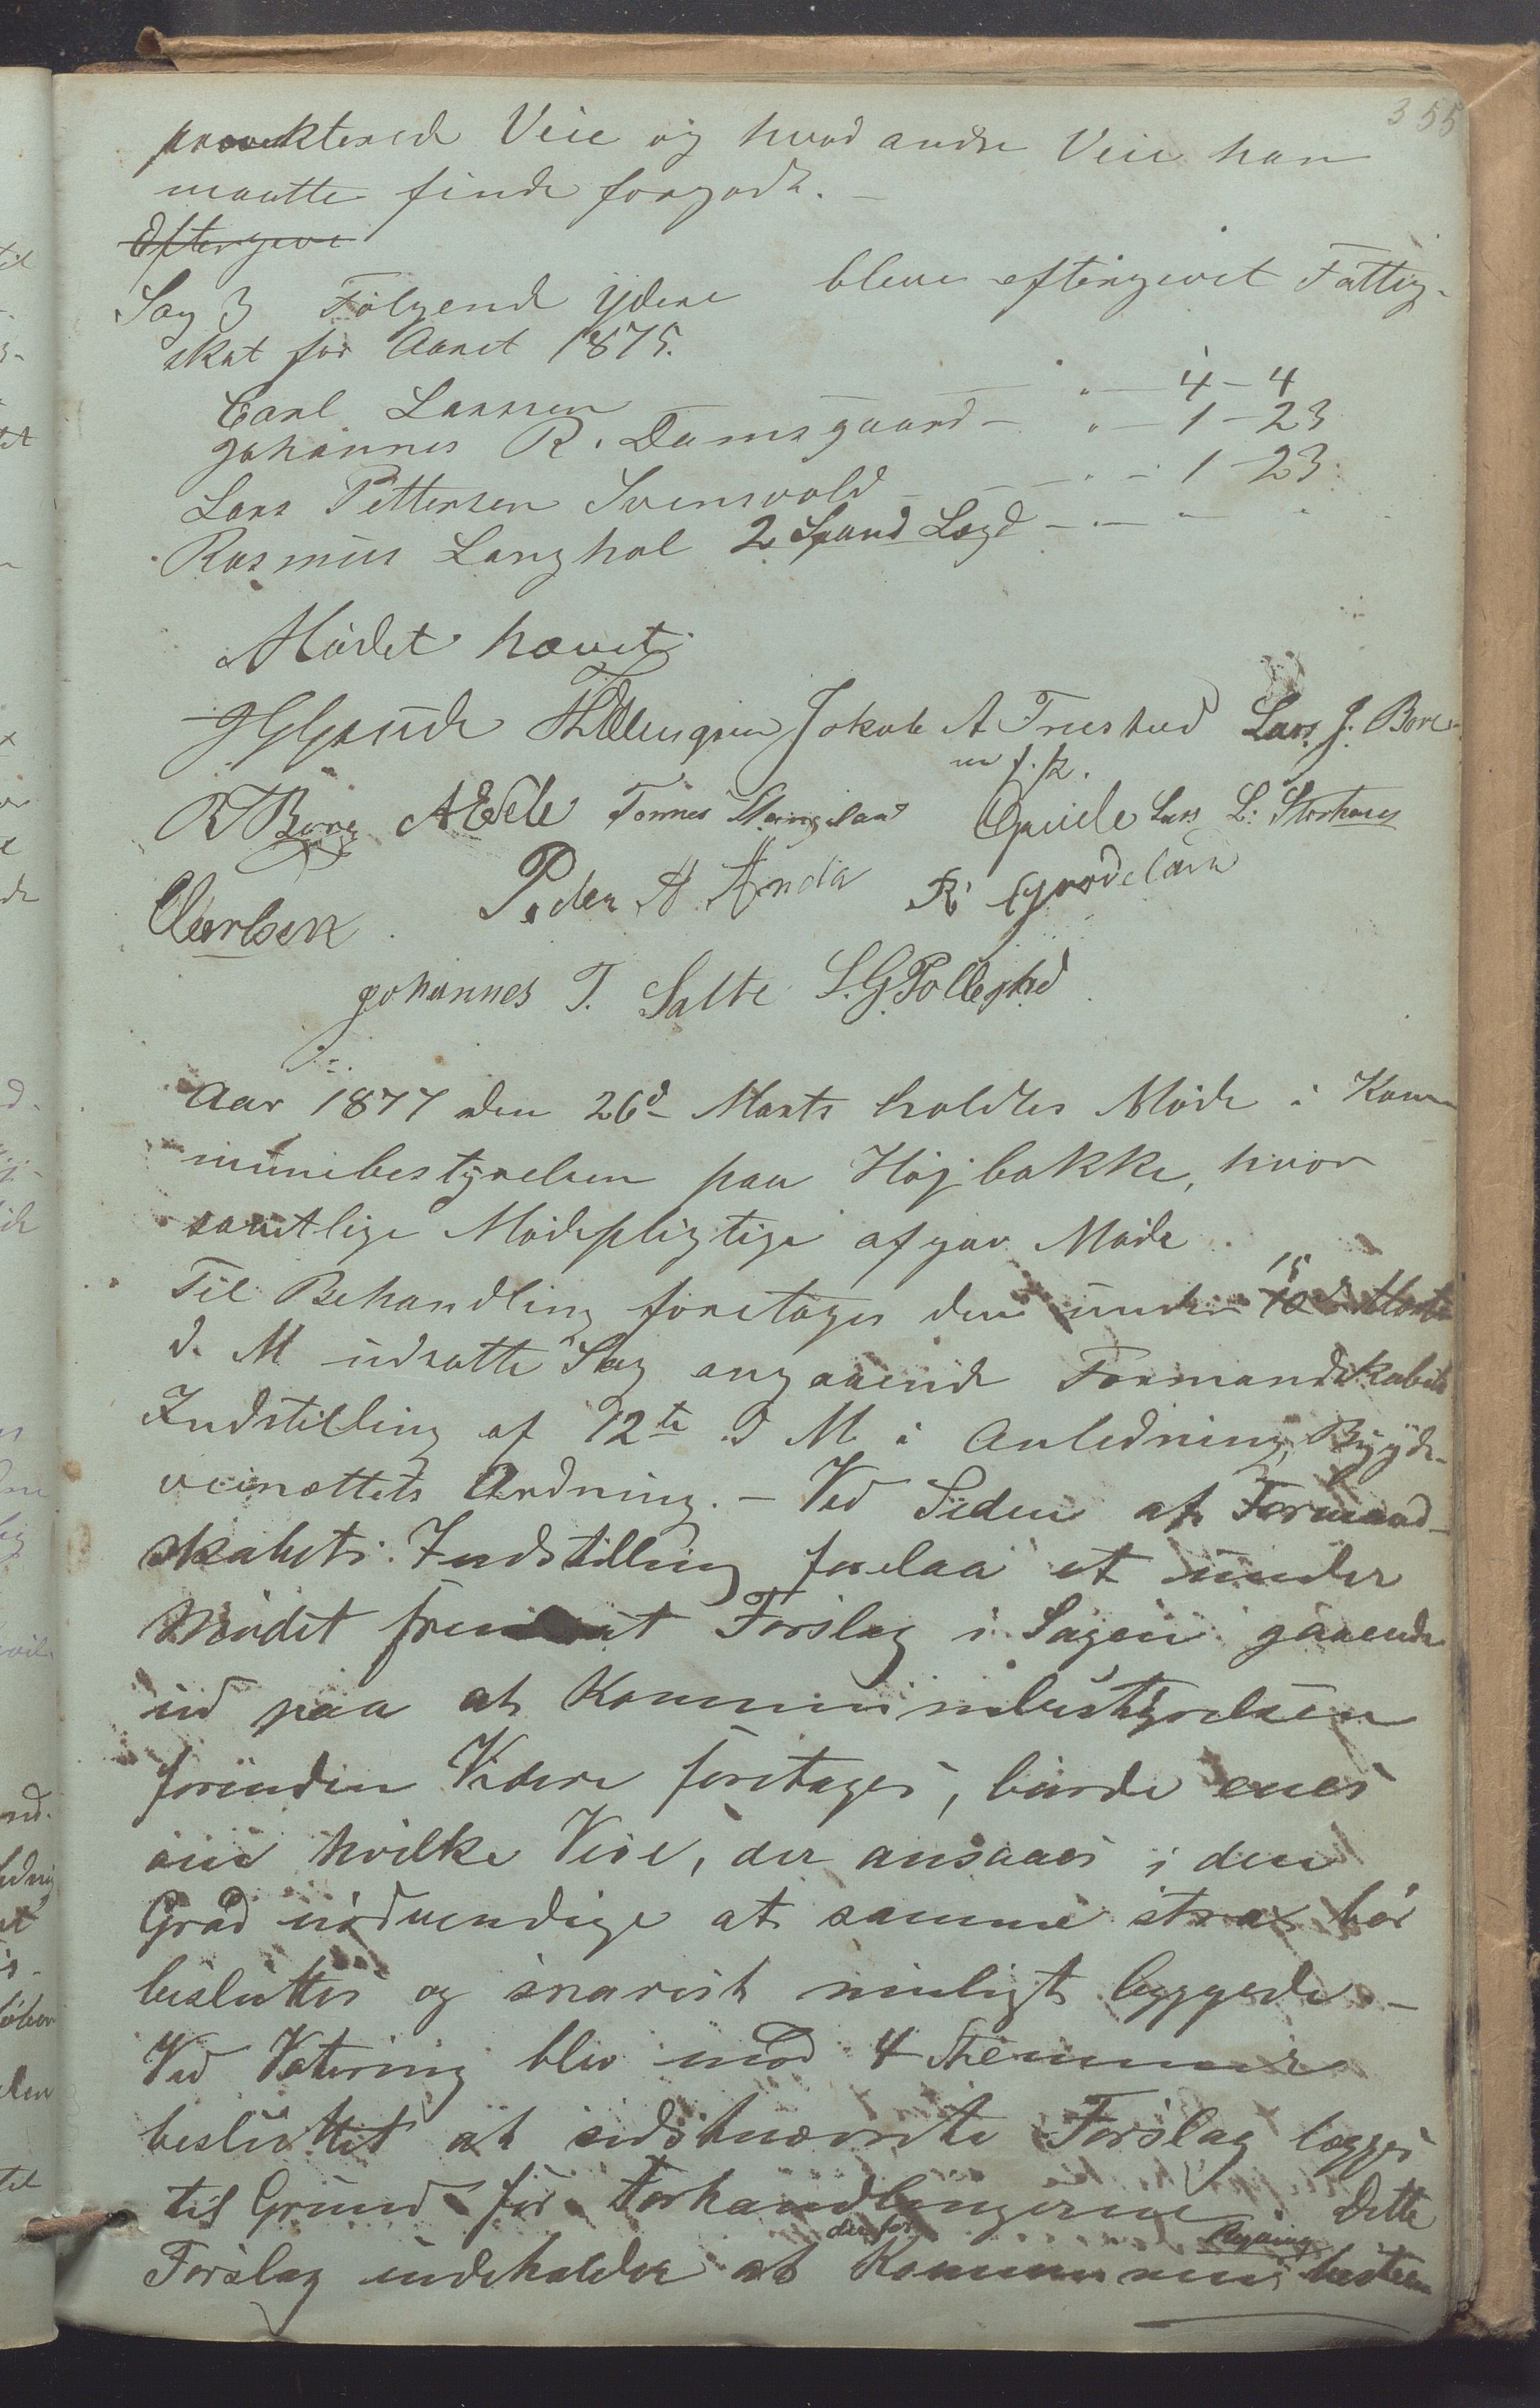 355
provekterede Veie og hvad andre Veie han
maatte finde forgodt. -
Eftergive
Sag 3 Følgende Ydere bleve eftergivet Fattig-
skat for Aaret 1875.
Carl Larsen " - 4 - 4
Johannes R. Damsgaard - " - 1 - 23
Lars Pettersen Svensvold - " - 1 - 23
Rasmus Langhol 2 Spand Lægd - " - "
Mødet hævet
Jakob A Truestad Lars J. Bore
m f. p.
R T Bore A Edle Tønnes Lars L. Storhaug
Peder A Anda
Johannes T. Salte S. G. Pollestad
Aar 1877 den 26d Marts holdtes Møde i Kom-
munebestyrelsen paa Højbakke, hvor
samtlige Mødepligtige afgav Møde
Til Behandling foretages den under 15 Marts
d. M udsatte Sag angaaende Formandskabets
Indstilling af 12te d M. i Anledning Bygde-
veinættets Ordning. - Ved Siden af Formand-
skabets Indstilling forelaa et under
Mødet Forslag i Sagen gaaende
ud paa at Kommunebestyrelsen
forinden Videre foretages, burde enes
om hvilke Veie, der ansaaes i den
Grad nødvendige at samme strax bør
besluttes og snarest muligt byggede -
Ved Votering blev mod 4 Stemmer
besluttet at sidstnævnte Forslag lægges
til Grund for Forhandlingerne. Dette
derfor
Forslag indeholder at Kommunens bestem